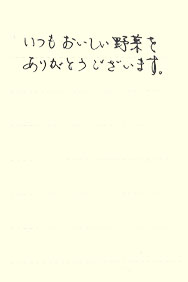 いつもおいしい野菜を
ありがとうございます。